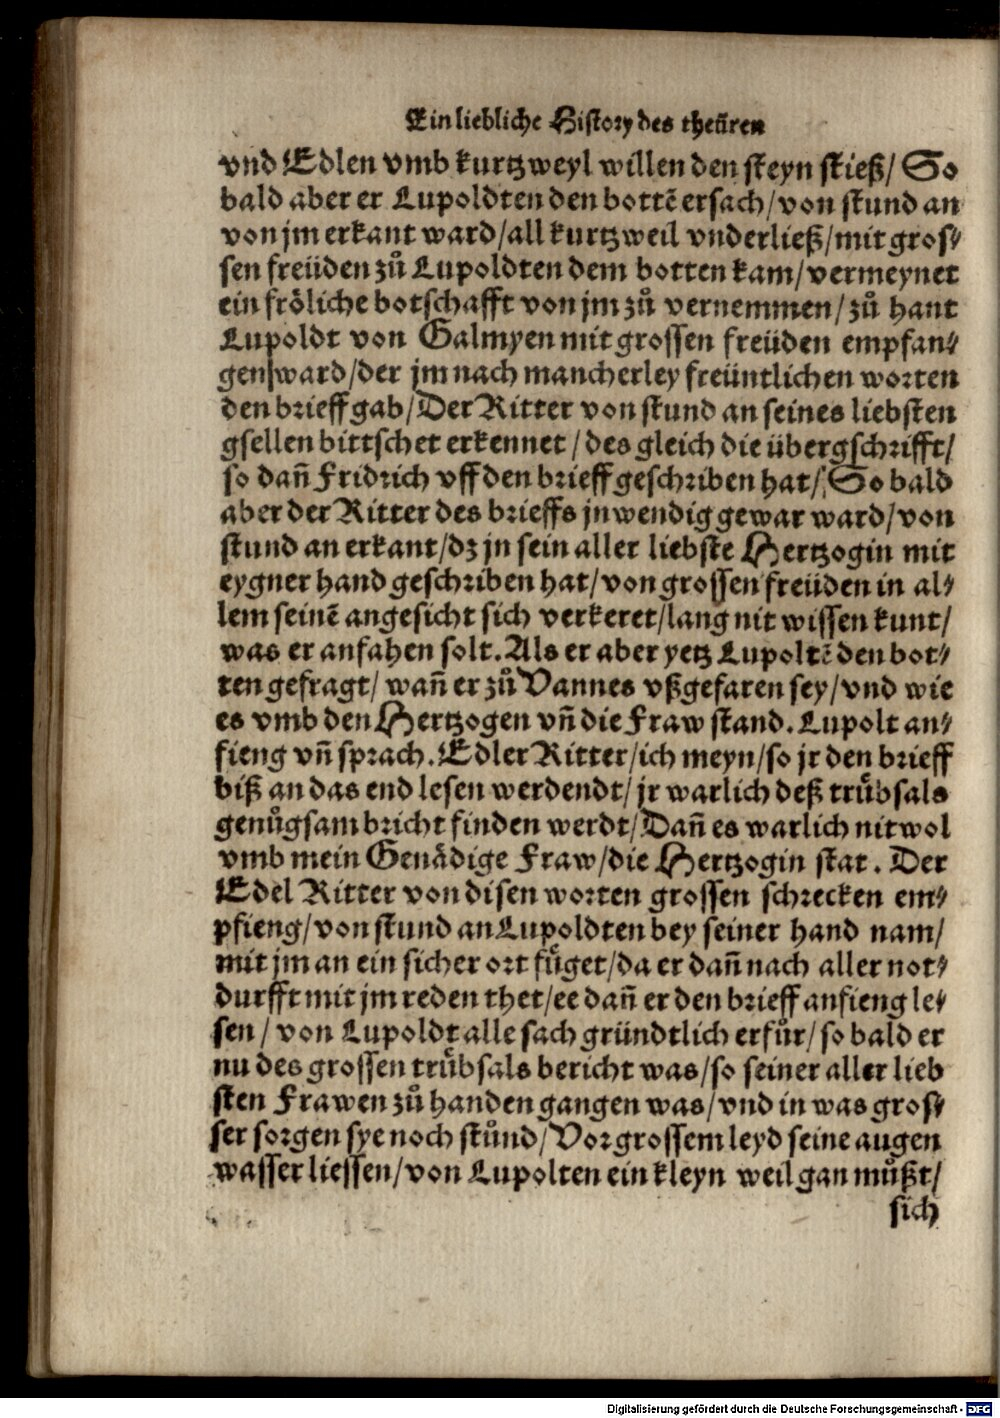 Ein liebliche History des theüren
vnd Edlen vmb kurtzweyl willen den steyn stieß/ So
bald aber er Lupoldten den bottẽ ersach/ von stund an
von jm erkant ward/ all kurtzweil vnderließ/ mit gros⸗
sen freüden zů Lupoldten dem botten kam/ vermeynet
ein fröliche botschafft von jm zů vernemmen/ zů hant
Lupoldt von Galmyen mit grossen freüden empfan⸗
gen ward/ der jm nach mancherley freüntlichen worten
den brieff gab/ Der Ritter von stund an seines liebsten
gsellen bittschet erkennet/ des gleich die übergschrifft/
so dañ Fridrich vff den brieff geschriben hat/ So bald
aber der Ritter des brieffs jnwendig gewar ward/ von
stund an erkant/ dz jn sein aller liebste Hertzogin mit
eygner hand geschriben hat/ von grossen freüden in al⸗
lem seinẽ angesicht sich verkeret/ lang nit wissen kunt/
was er anfahen solt. Als er aber yetz Lupoltẽ den bot⸗
ten gefragt/ wañ er zů Vannes vßgefaren sey/ vnd wie
es vmb den Hertzogen vñ die Fraw stand. Lupolt an⸗
fieng vñ sprach. Edler Ritter/ ich meyn/ so jr den brieff
biß an das end lesen werdendt/ jr warlich deß trůbsals
genůgsam bricht finden werdt/ Dañ es warlich nit wol
vmb mein Genädige Fraw/ die Hertzogin stat. Der
Edel Ritter von disen worten grossen schrecken em⸗
pfieng/ von stund an Lupoldten bey seiner hand nam/
mit jm an ein sicher ort fůget/ da er dañ nach aller not⸗
durfft mit jm reden thet/ ee dañ er den brieff anfieng le⸗
sen/ von Lupoldt alle sach gründtlich erfůr/ so bald er
nu des grossen trůbsals bericht was/ so seiner aller lieb
sten Frawen zů handen gangen was/ vnd in was gros⸗
ser sorgen sye noch stůnd/ Vor grossem leyd seine augen
wasser liessen/ von Lupolten ein kleyn weil gan můßt/
sich
Digitalisierung gefördert durch die Deutsche Forschungsgemeinschaft - DFG